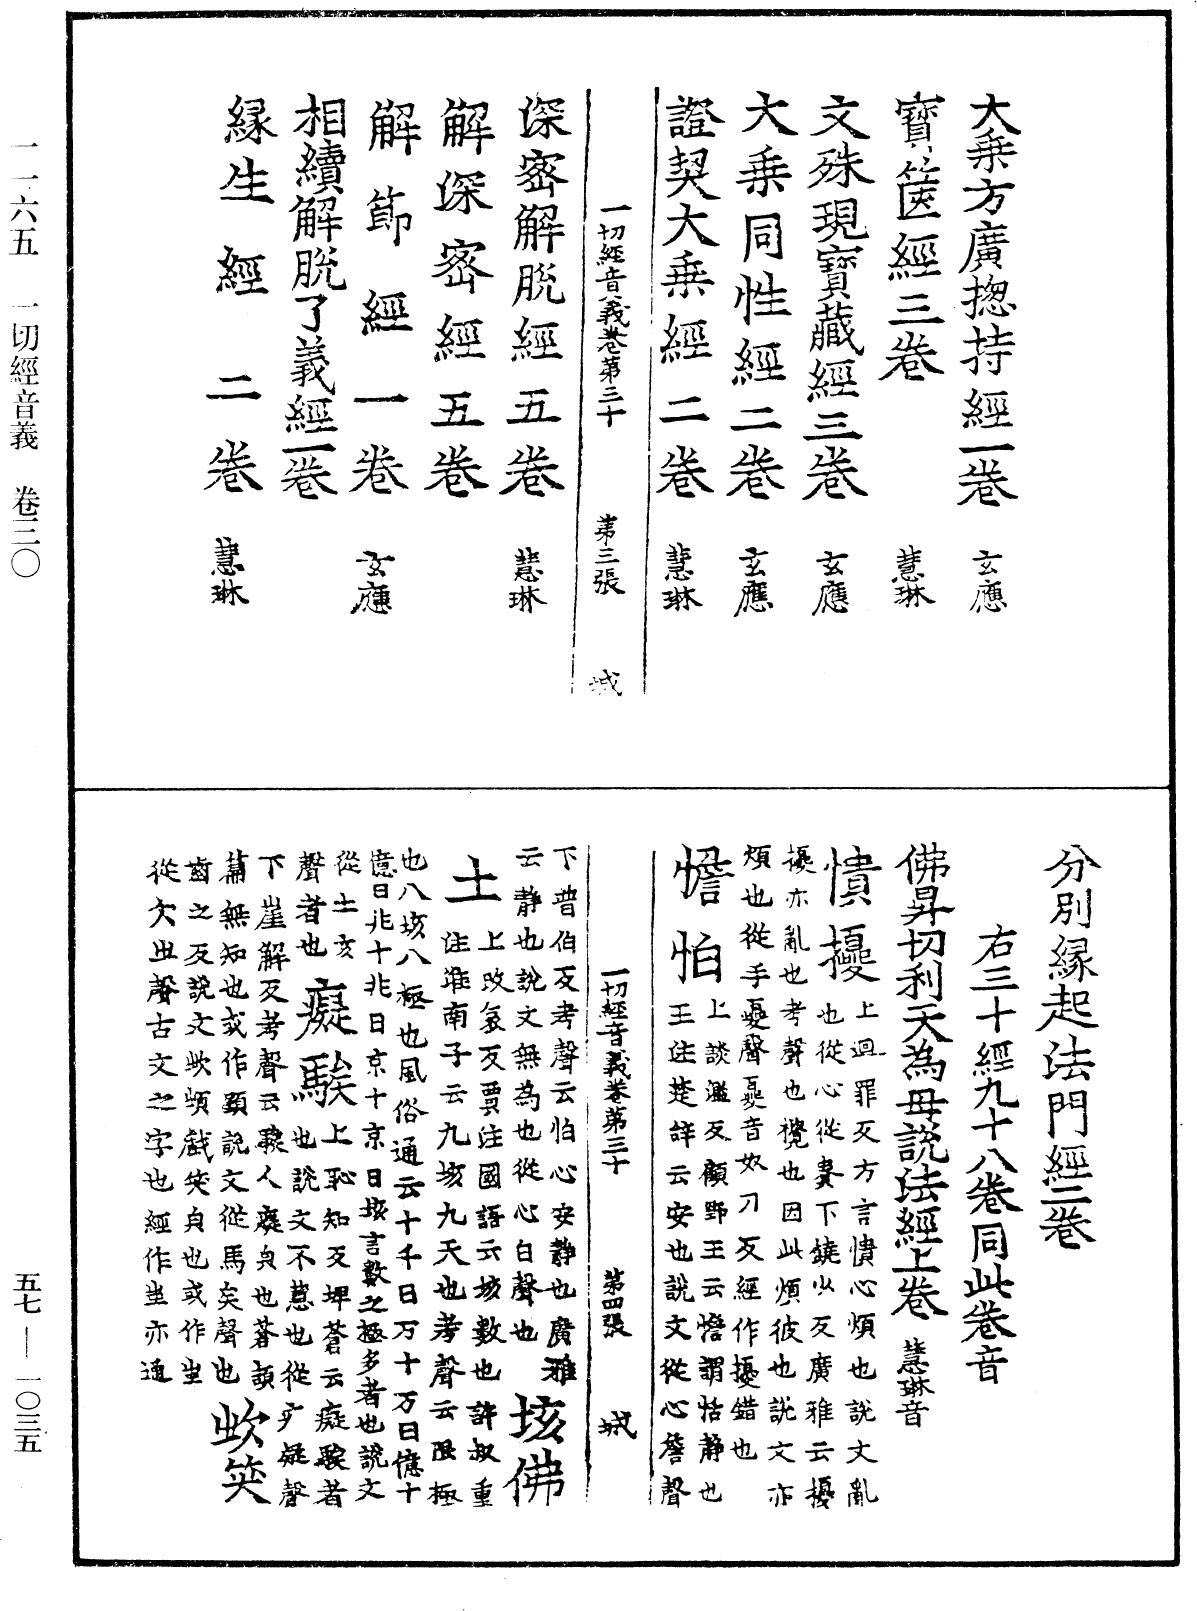 大乗方廣揔持經一巻 玄應
寶篋經三巻 慧琳
文殊現寶藏經三巻 玄應
大乗同性經二巻 玄應
證契大乗經二巻 慧琳
一切經音義巻第三十 第三張 城
深密解脫經五巻 慧琳
解深密經五巻
解節經一巻 玄應
相續解脫了義經一巻
縁生經二巻 慧琳
分別縁起法門經二巻
右三十經九十八巻同此巻音
佛昇忉利天為母說法經上巻 慧琳音
憒擾 上迴罪反方言憒心煩也說文亂
也從心從貴下鐃少反廣雅云擾
擾亦亂也考聲也攪也因此煩彼也說文亦
煩也從手夒聲夒音奴刀反經作擾錯也
憺怕 上談濫反顧野王云憺謂恬静也
王注楚辞云安也說文從心詹聲
一切經音義巻第三十 第四張 城
下普伯反考聲云怕心安静也廣雅
云静也說文無為也從心白聲也 垓佛
土 上改哀反賈注國語云垓數也許叔重
注淮南子云九垓九天也考聲云限極
也八垓八極也風俗通云十千曰万十万曰億十
億曰兆十兆曰京十京曰垓言數之極多者也說文
從土亥
聲者也 癡騃 上恥知反埤蒼云癡騃者
也說文不慧也從疒疑聲
下崖解反考聲云騃人癡皃也蒼頡
萹無知也或作䫑說文從馬矣聲也 㰞笑
齒之反說文㰞㰞戲笑皃也或作㘜
從欠㞢聲古文之字也經作蚩亦通
一一六五 一切經音義 卷三〇
五七—一〇三五